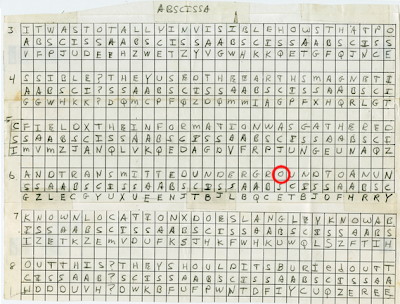 ABSCISSA
3 ITWASTOTALLYINVISIBLEHOWSTHATPO
ABSCISSAABSCISSAABSCISSAABSCISS
VFPJUDEEHZWETZYVGWHKKQETGFQJNCE
4 SSIBLE?THEYUSEDTHEEARTHSMAGNETI
AABSCI?SSAABSCISSAABSCISSAABSCI
GGWHKK?DQMCPFQZDQMMIAGPFXHQRLGT
5 CFIELDXTHEINFORMATIONWASGATHERED
SSAABSCISSAABSCISSAABSCISSAABSCI
IMVMZJANQLVKQEDAGDVFRPJUNGEUNAQZ
6 ANDTRANSMITTEDUNDERGROUNDTOANUN
SSAABSCISSAABSCISSAABSCISSAABSC
GZLECGYUXUEENJTBJLBQCETBJDFHRRY
7 KNOWNLOCATIONXDOESLANGLEYKNOWAB
ISSAABSCISSAABSCISSAABSCISSAABS
IZETKZEMVDUFKSJHKFWHKUWQLSZFTIH
8 OUTTHIS?THEYSHOULDITSBURIEdOUTT
CISSAAB?SCISSAABSCISSAABSCISSAA
HDDDUVH?DWKBFUFPWNTDFIYCUQZEREE